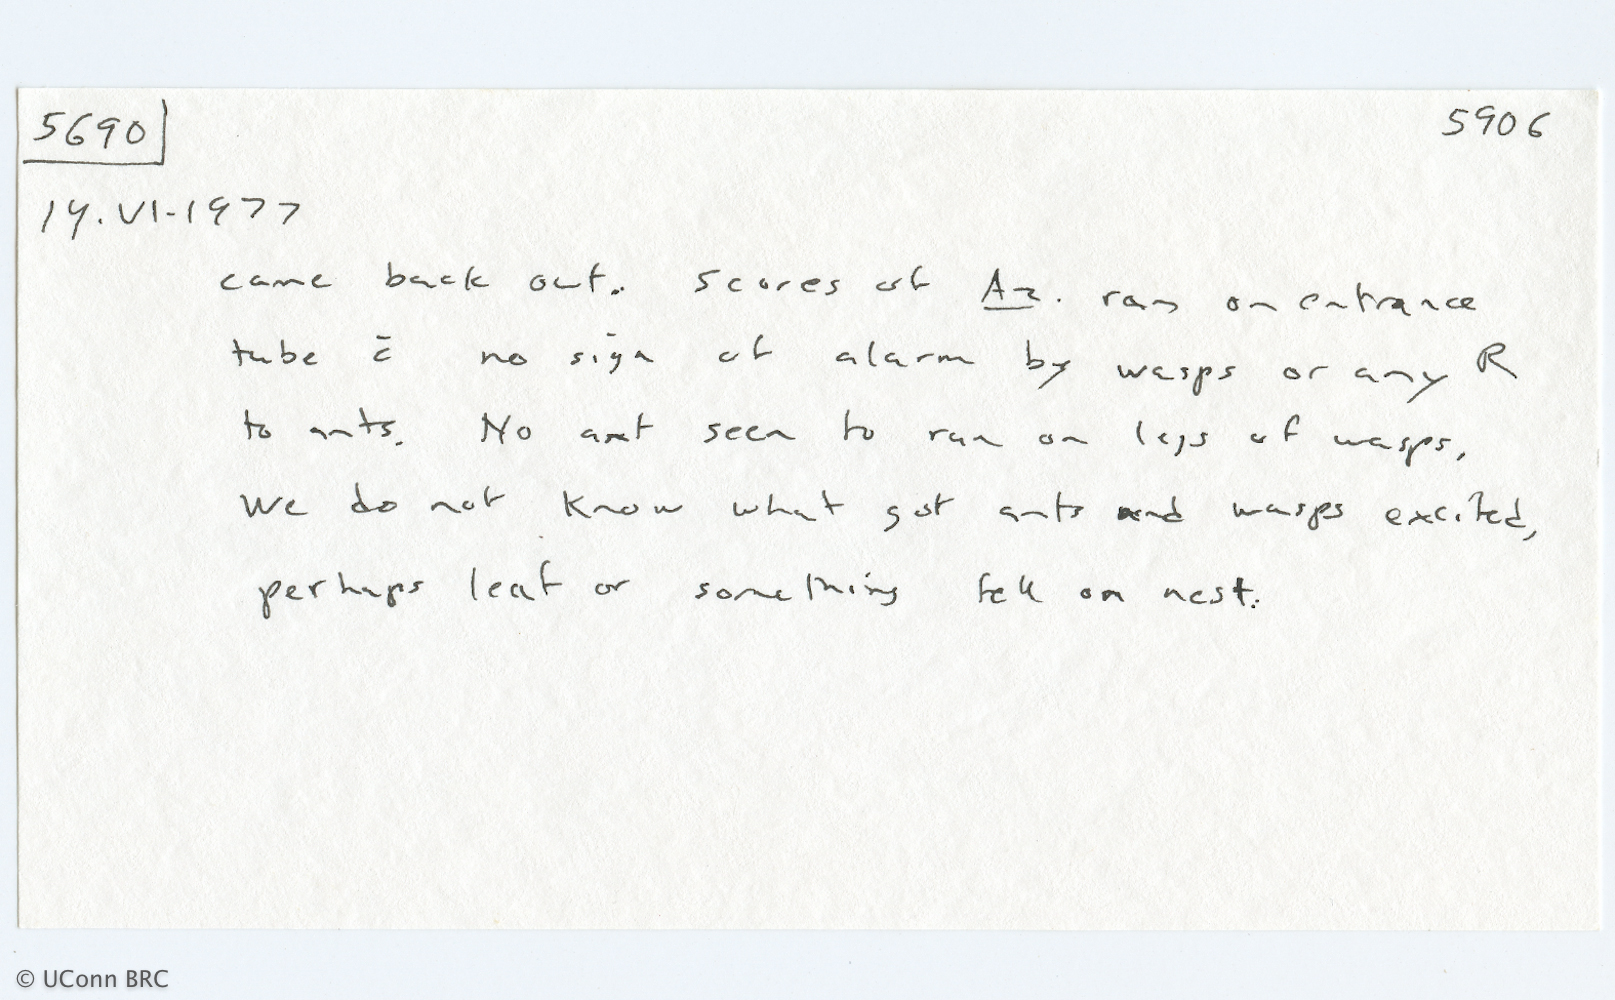 5690 5906
14.VI-1977
came back out. Scores of Az. ran on entrance
tube c̄ no sign of alarm by wasps or any R
to ants. No ant seen to run on legs of wasps.
We do not know what got ants and wasps excited,
perhaps leaf or something fell on nest.
© UConn BRC